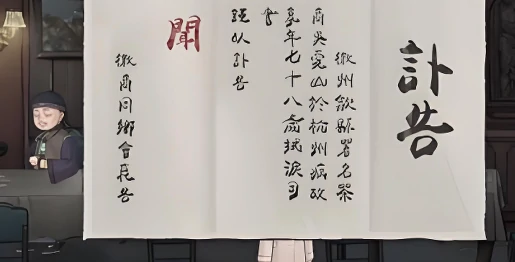 訃告
徽州歙縣署名茶
商吳山於杭州病故
享年七十八歲拭淚
以訃告
聞
徽商同鄉會告